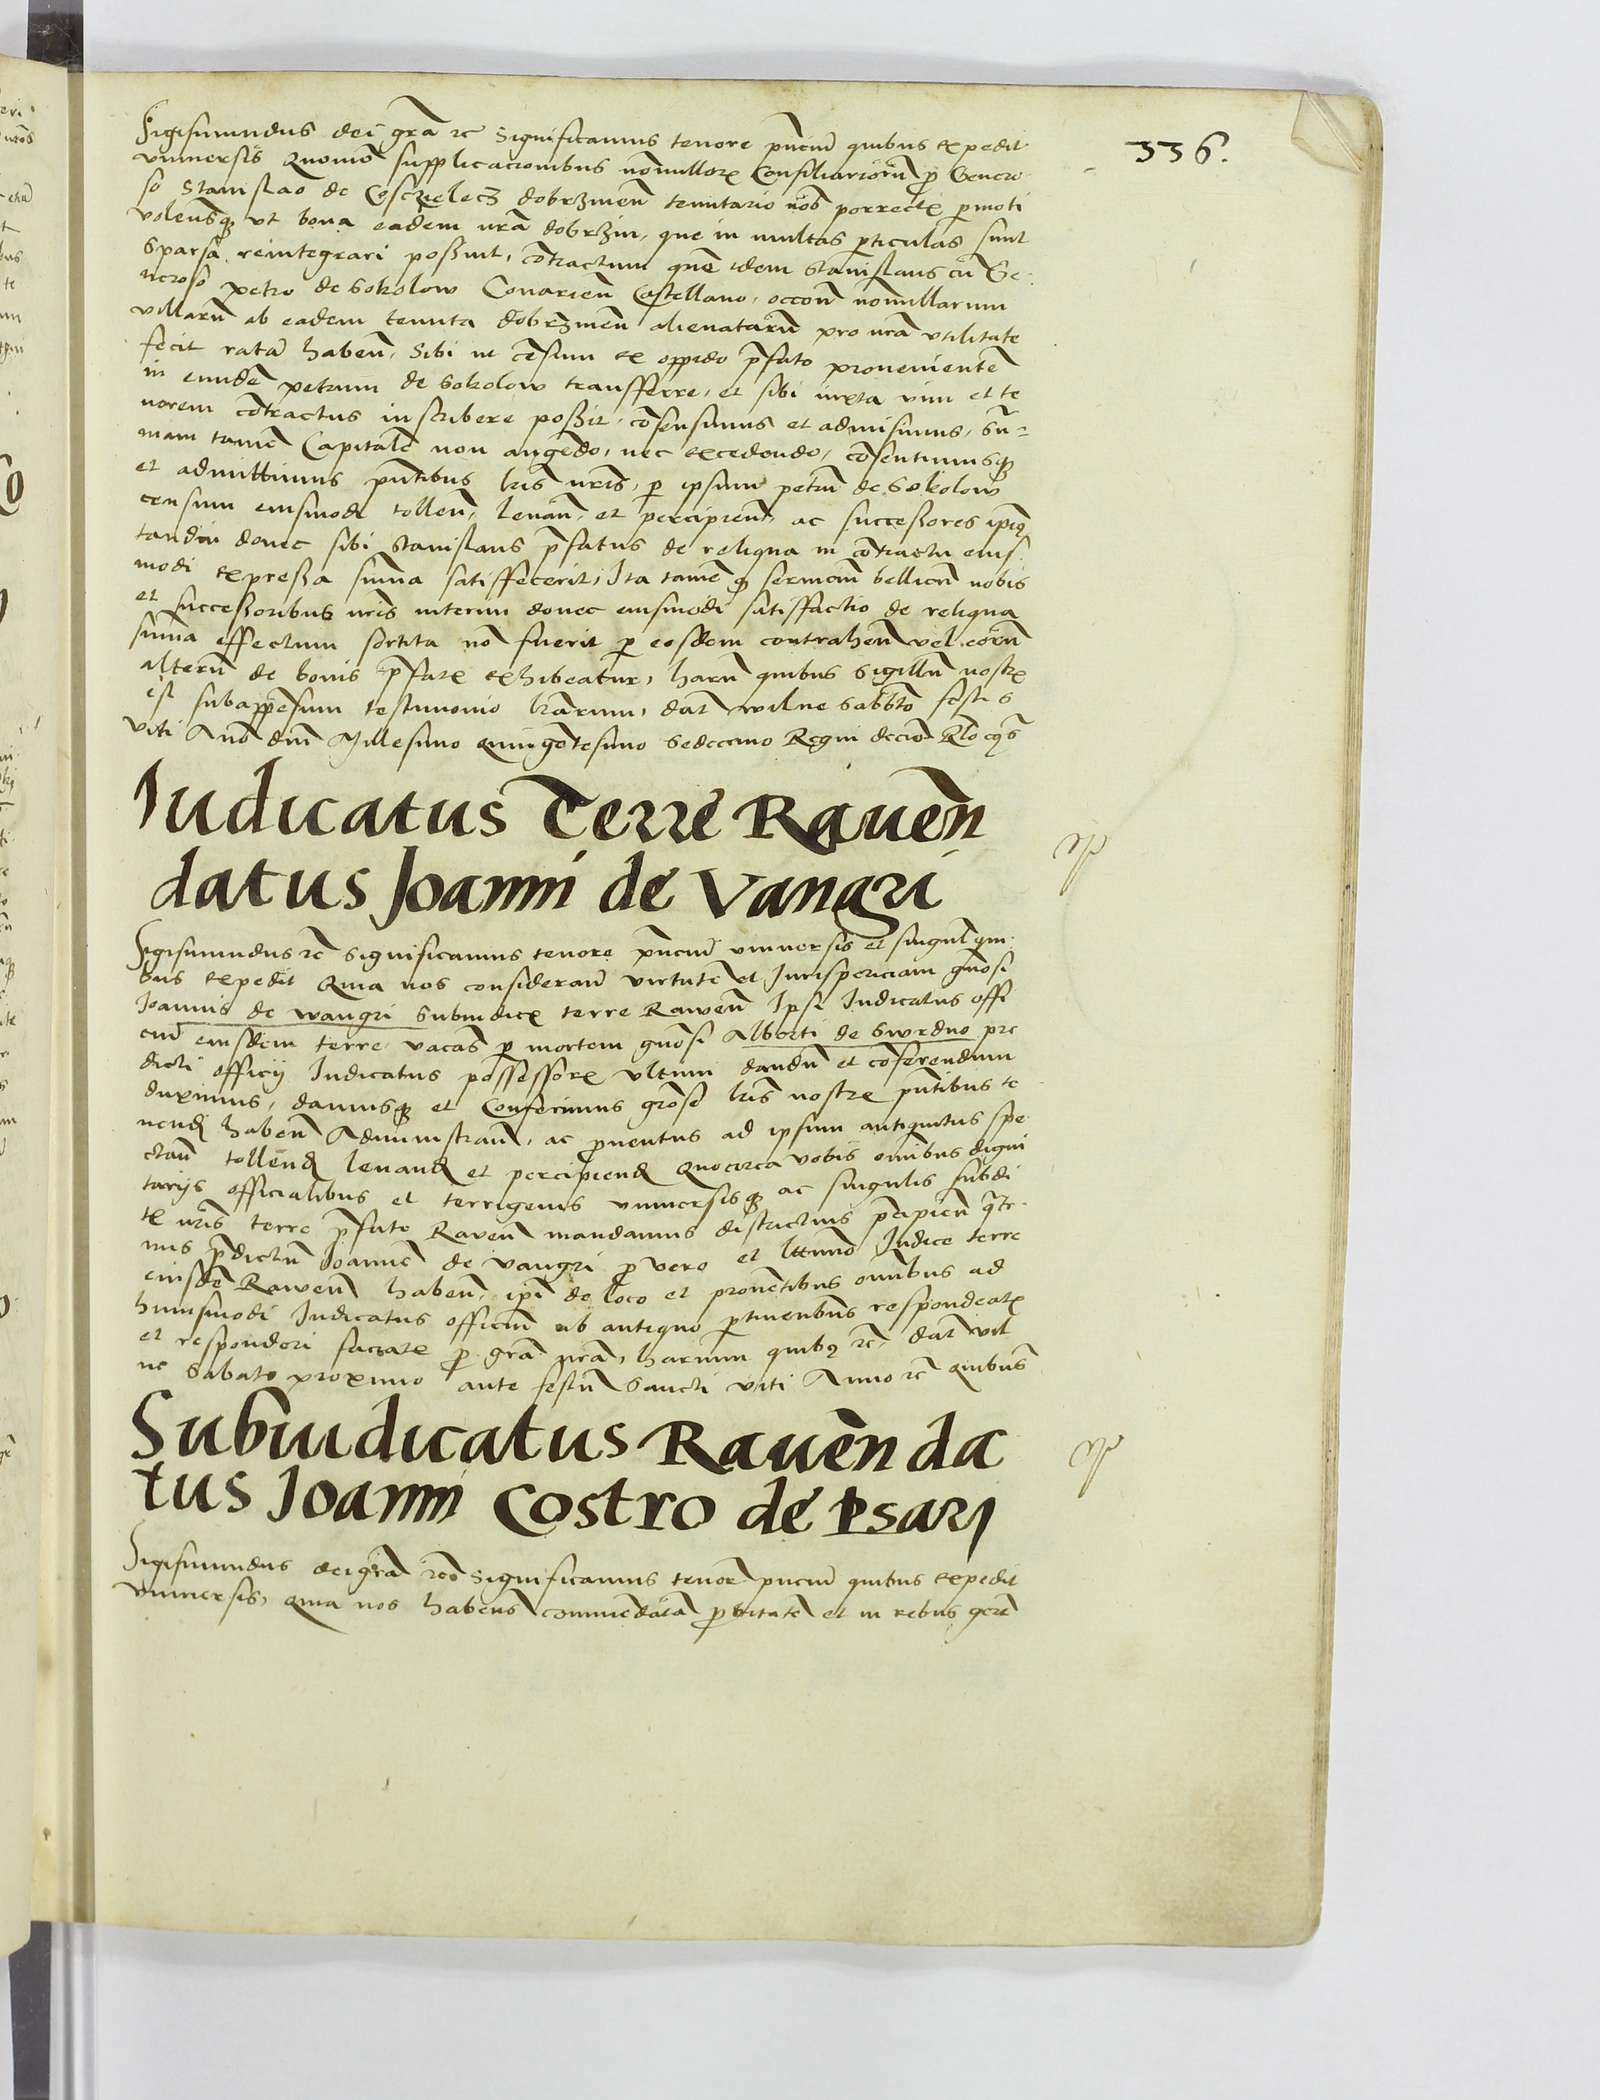 336.
Sigismundus dei grã rc̃ Significamus tenore pñciũ quibus expedit
vniuersis Quomõ supplicacionibus nõnullorꝝ Consiliariorũ p̱ Genero
so Stanislao de Cosczielecz dobrzineñ tenutario nõb porrectis p̱moti
volensqꝫ vt bona eadem nrã dobrzin, que in multas p̱ticulas sunt
sparsa reintegrari possint, cõtractum quẽ idem Stanislaus cũ Ge-
neroso petro de Sokolow Conarieñ Castellano, occõñ nõnullarum
villarũ ab eadem tenuta dobrzineñ alienatarũ pro nrã vtilitate
fecit ratã habeñ, Sibi ut cẽsum ex oppido p̃fato proueniente͂
in eundẽ petrum de Sokolow transfferre, et sibi iuxta vim et te
norem cõtractus inscribere possit, cõsensimus et admisimus, Sũ-
mam tamẽ Capitalẽ non augẽdo, nec excedendo, cõsentimusqꝫ
et admittimus pñtibus lrĩs nrĩs, p̱ ipsum petrũ de Sokolow
censum eiusmodi tolleñ, leuañ, et percipieñ, ac successores ipiꝰ
tandiu donec sibi Stanislaus p̃fatus de reliqua in cõtractu eius
modi expressa sum̃a satisfecerit, Ita tamẽ qꝫ seruiciũ bellicũ nobis
et successoribus nrĩs interim donec eiusmodi satisfactio de reliqua
sum̃a effectum sortita nõ fuerit p̱ eosdem contraheñ vel eorũ
alterũ de bonis p̃fatis exhibeatur, harũ quibus Sigillũ nostrꝝ
est subappẽsum testimonio lrãrum, dat̃ wilne sabbto festi S
viti Año dnĩ Millesimo quingẽtesimo Sedecimo Regni decĩo Rlõ eiꝰ
Iudicatus Terre Raueñ
datus Joanni de Vangri
Sigismundus rc̃ Significamus tenore pñciũ vniuersis et singulĩ qui
bus expedit Quia nos considerañ virtutẽ et Jurisperciam gñosi
Joannis de wangri Subiudicis terre Raweñ Ipsi Iudicatus offi
ciũ eiusdem terre, vacãs p̱ mortem gñosi Alberti de Swrdno pre
dicti officij Iudicatus possessoris vltimi dandũ et cõferendum
duximus, damusqꝫ et Conferimus grõse lrĩs nostrꝝ pñtibus te
nenđ habeñ Administrañ, ac p̱uentus ad ipsum antiquitus spe
ctañ tollenđ leuanđ et percipienđ Quocirca vobis omĩbus digni
tarijs officialibus et terrigenis vniuersisqꝫ ac singulis subdi
tis nrĩs terre p̃fate Raueñ mandamus districtius p̃cipieñ q̃te-
nus p̃dictũ Joannẽ de vangri p̱ vero et lttimo Iudice terre
eiusdẽ Raweñ habeñ, ipĩ de loco et prouẽtibus omĩbus ad
huiusmodi Iudicatus officiũ ab antiquo p̱tinentibus respondeatis
et responderi faciatis p̱ grã nrã, harum quibꝰ rc̃, dat̃ vil
ne Sabato proximo ante festũ Sancti viti Anno rc̃ Quibus
Subiudicatus Raueñ da
tus Joanni Costro de Psari
Sigismundus dei grã rc̃ Significamus tenore pñciũ quibus expedit
vniuersis, Quia nos habens commẽdatã p̱bitatẽ et in rebus gereñ